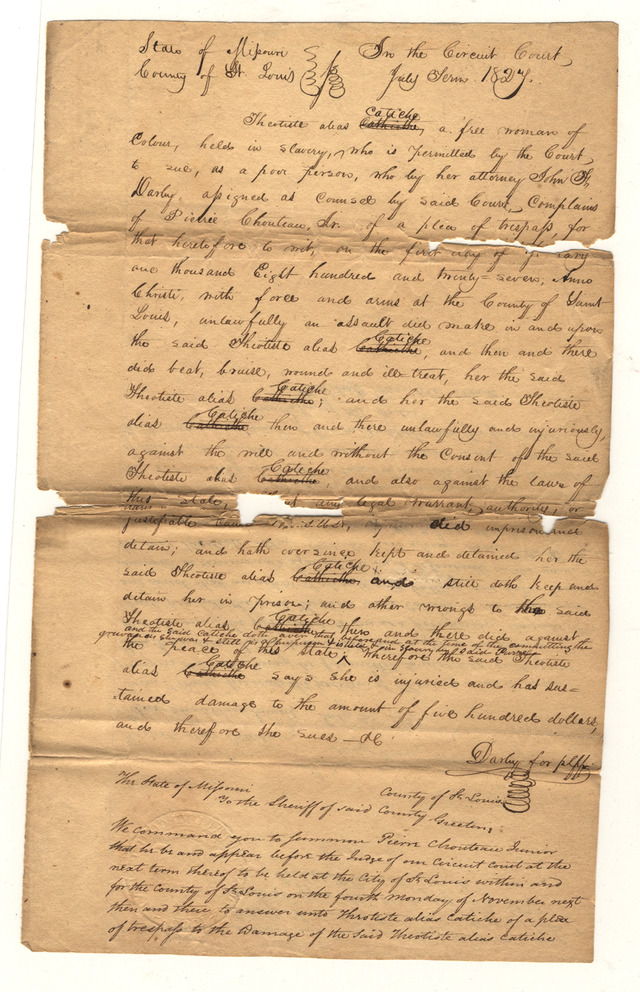 State of Missouri
County of St. Louis
In the Circuit Court,
July Term 1827.
Catiche
Theotiste alias Cathiche, a free woman of
Colour, held in slavery, who is permitted by the Court,
to sue, as a poor person, who by her attorney John F.
Darby, assigned as Counsel by said Court, Complains
of Pierre Chouteau, Jr. of a plea of trespass for
that heretofore to wit, on the first day of
one thousand Eight hundred and twenty-seven, Anno
Christi, with force and arms at the County of Saint
Louis, unlawfully an assault did make in and upon
Catiche
the said Theotiste alias Cathiche, and then and there
did beat, bruise, wound and ill-treat, her the said
Catiche
Theotiste alias Cathiche; and her the said Theotiste
Catiche
alias Cathiche then and there unlawfully and injuriously,
against the will and without the Consent of the said
Catiche
Theotiste alias Cathiche, and also against the laws of
this State, any legal warrant, authority, or
justifiable did imprison and
detain; and hath ever since kept and detained her the
Catiche
said Theotiste alias Cathiche and still doth keep and
detain her in prison; and other wrongs to the said
Catiche
Theotiste alias Cathiche then and there did against
and the said Catiche doth aver that before and at the time of the committing the
grievances she was & still is a free person &
the peace of this State; Wherefore the said Theotiste
Catiche
alias Cathiche says she is injured and has sus-
tained damage to the amount of five hundred dollars,
and therefore she sues &c
Darby for plff
The State of Missouri County of St. Louis
To the Sheriff of said County Greeting;
We command you to Summon Pierre Chouteau Junior
that he be and appear before the Judge of our Circuit Court at the
next term thereof to be held at the City of St. Louis within and
for the County of St. Louis on the fourth Monday of November next
then and there to answer unto Theotiste alias Catiche of a plea
of trespass to the Damage of the Said Theotiste alias Catiche